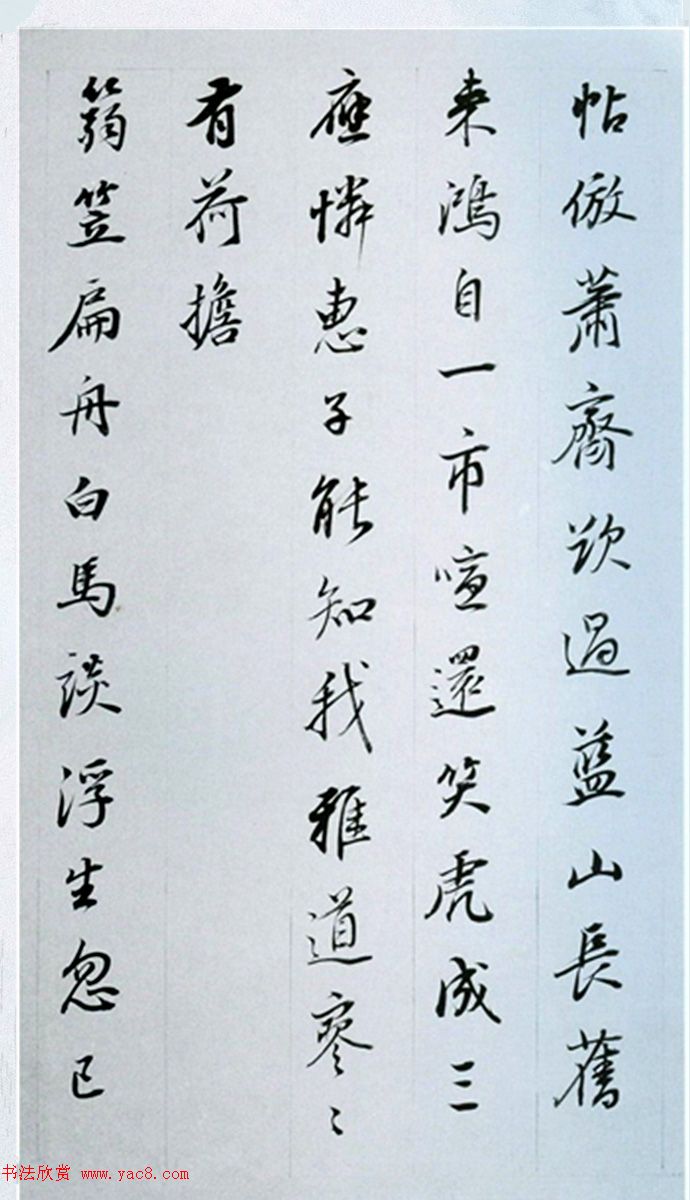 帖倣蕭齋歟過藍山長舊
来鴻自一市喧還笑虎成三
應憐惠子能知我雅道寥〻
有荷擔
篛笠扁舟白馬談浮生忽已
书法欣赏 www.yac8.com